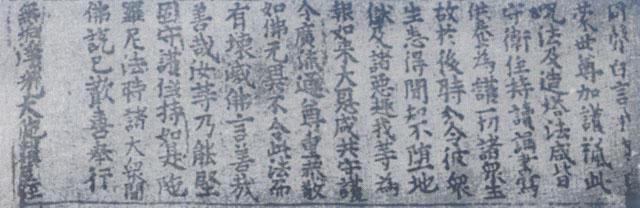 同聲白言
蒙世尊加護授此
呪法及造塔法咸皆
守衛住持讀誦書寫
供養為護一切諸衆生
故於後時分令彼衆
生悉得聞知不墮地
獄及諸惡趣我等為
報如来大恩咸共守護
令廣流通尊重恭敬
如佛无異不令此法而
有壞滅佛言善哉
善哉汝等乃能堅
固守護住持如是陁
羅尼法時諸大衆聞
佛說已歡喜奉行
無垢淨光大陁羅尼經